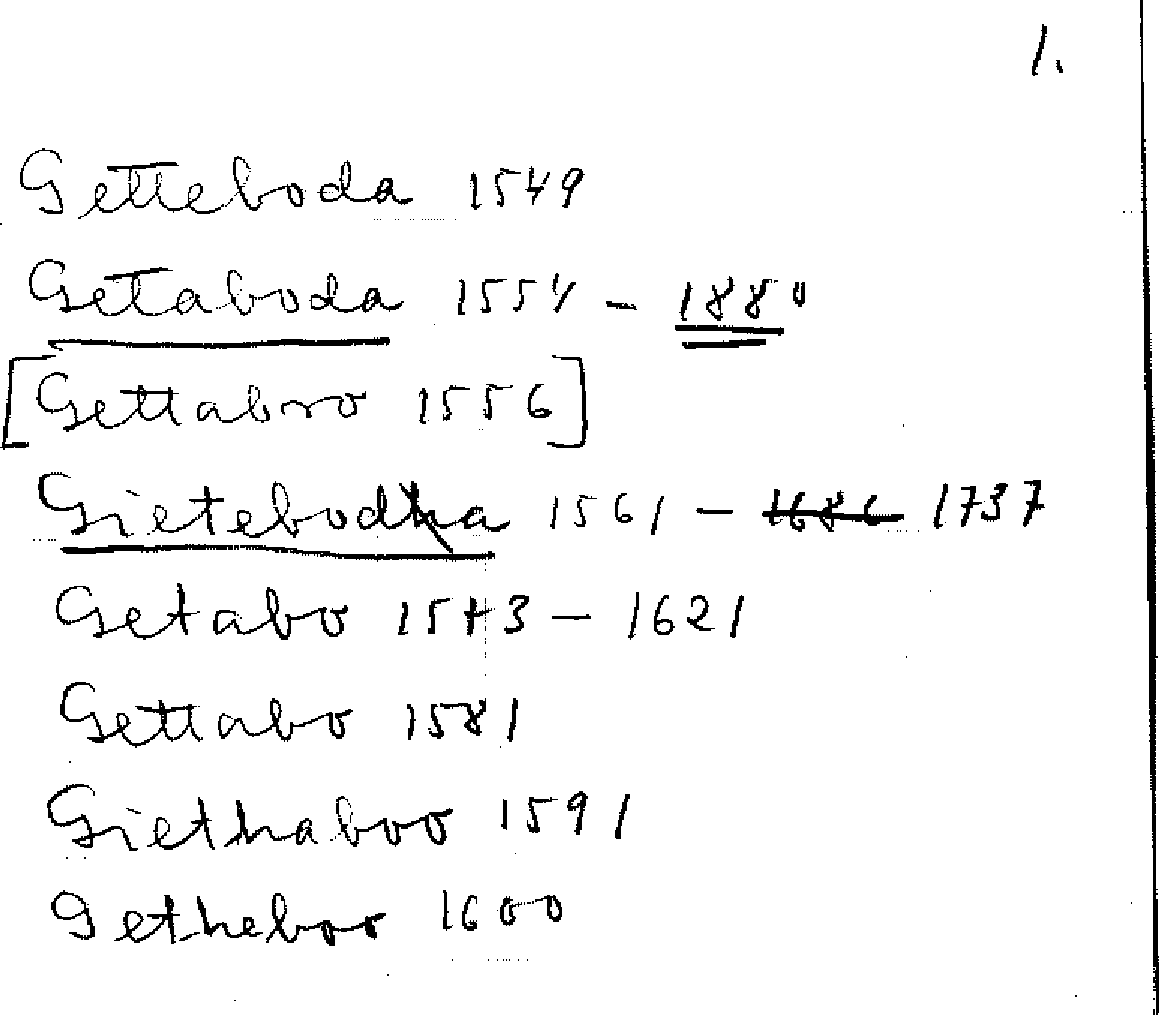 1.
Getteboda 1549
Getaboda 1554 – 1880
[Gettaboo 1556]
Gieteboda 1561 – 1737
Getabo 1573 – 1621
Gettabo 1581
Giethaboo 1591
Getheboo 1600